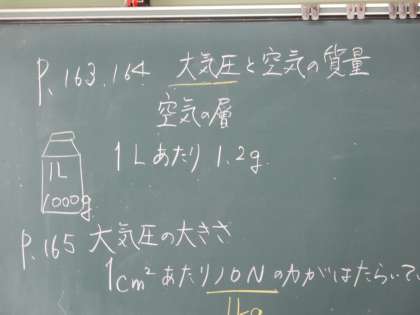 P.163.164. 大気圧と空気の質量
空気の層
1Lあたり 1.2g
1L
1000g
P.165 大気圧の大きさ
1cm²あたり10Nの力がはたらいて
1kg